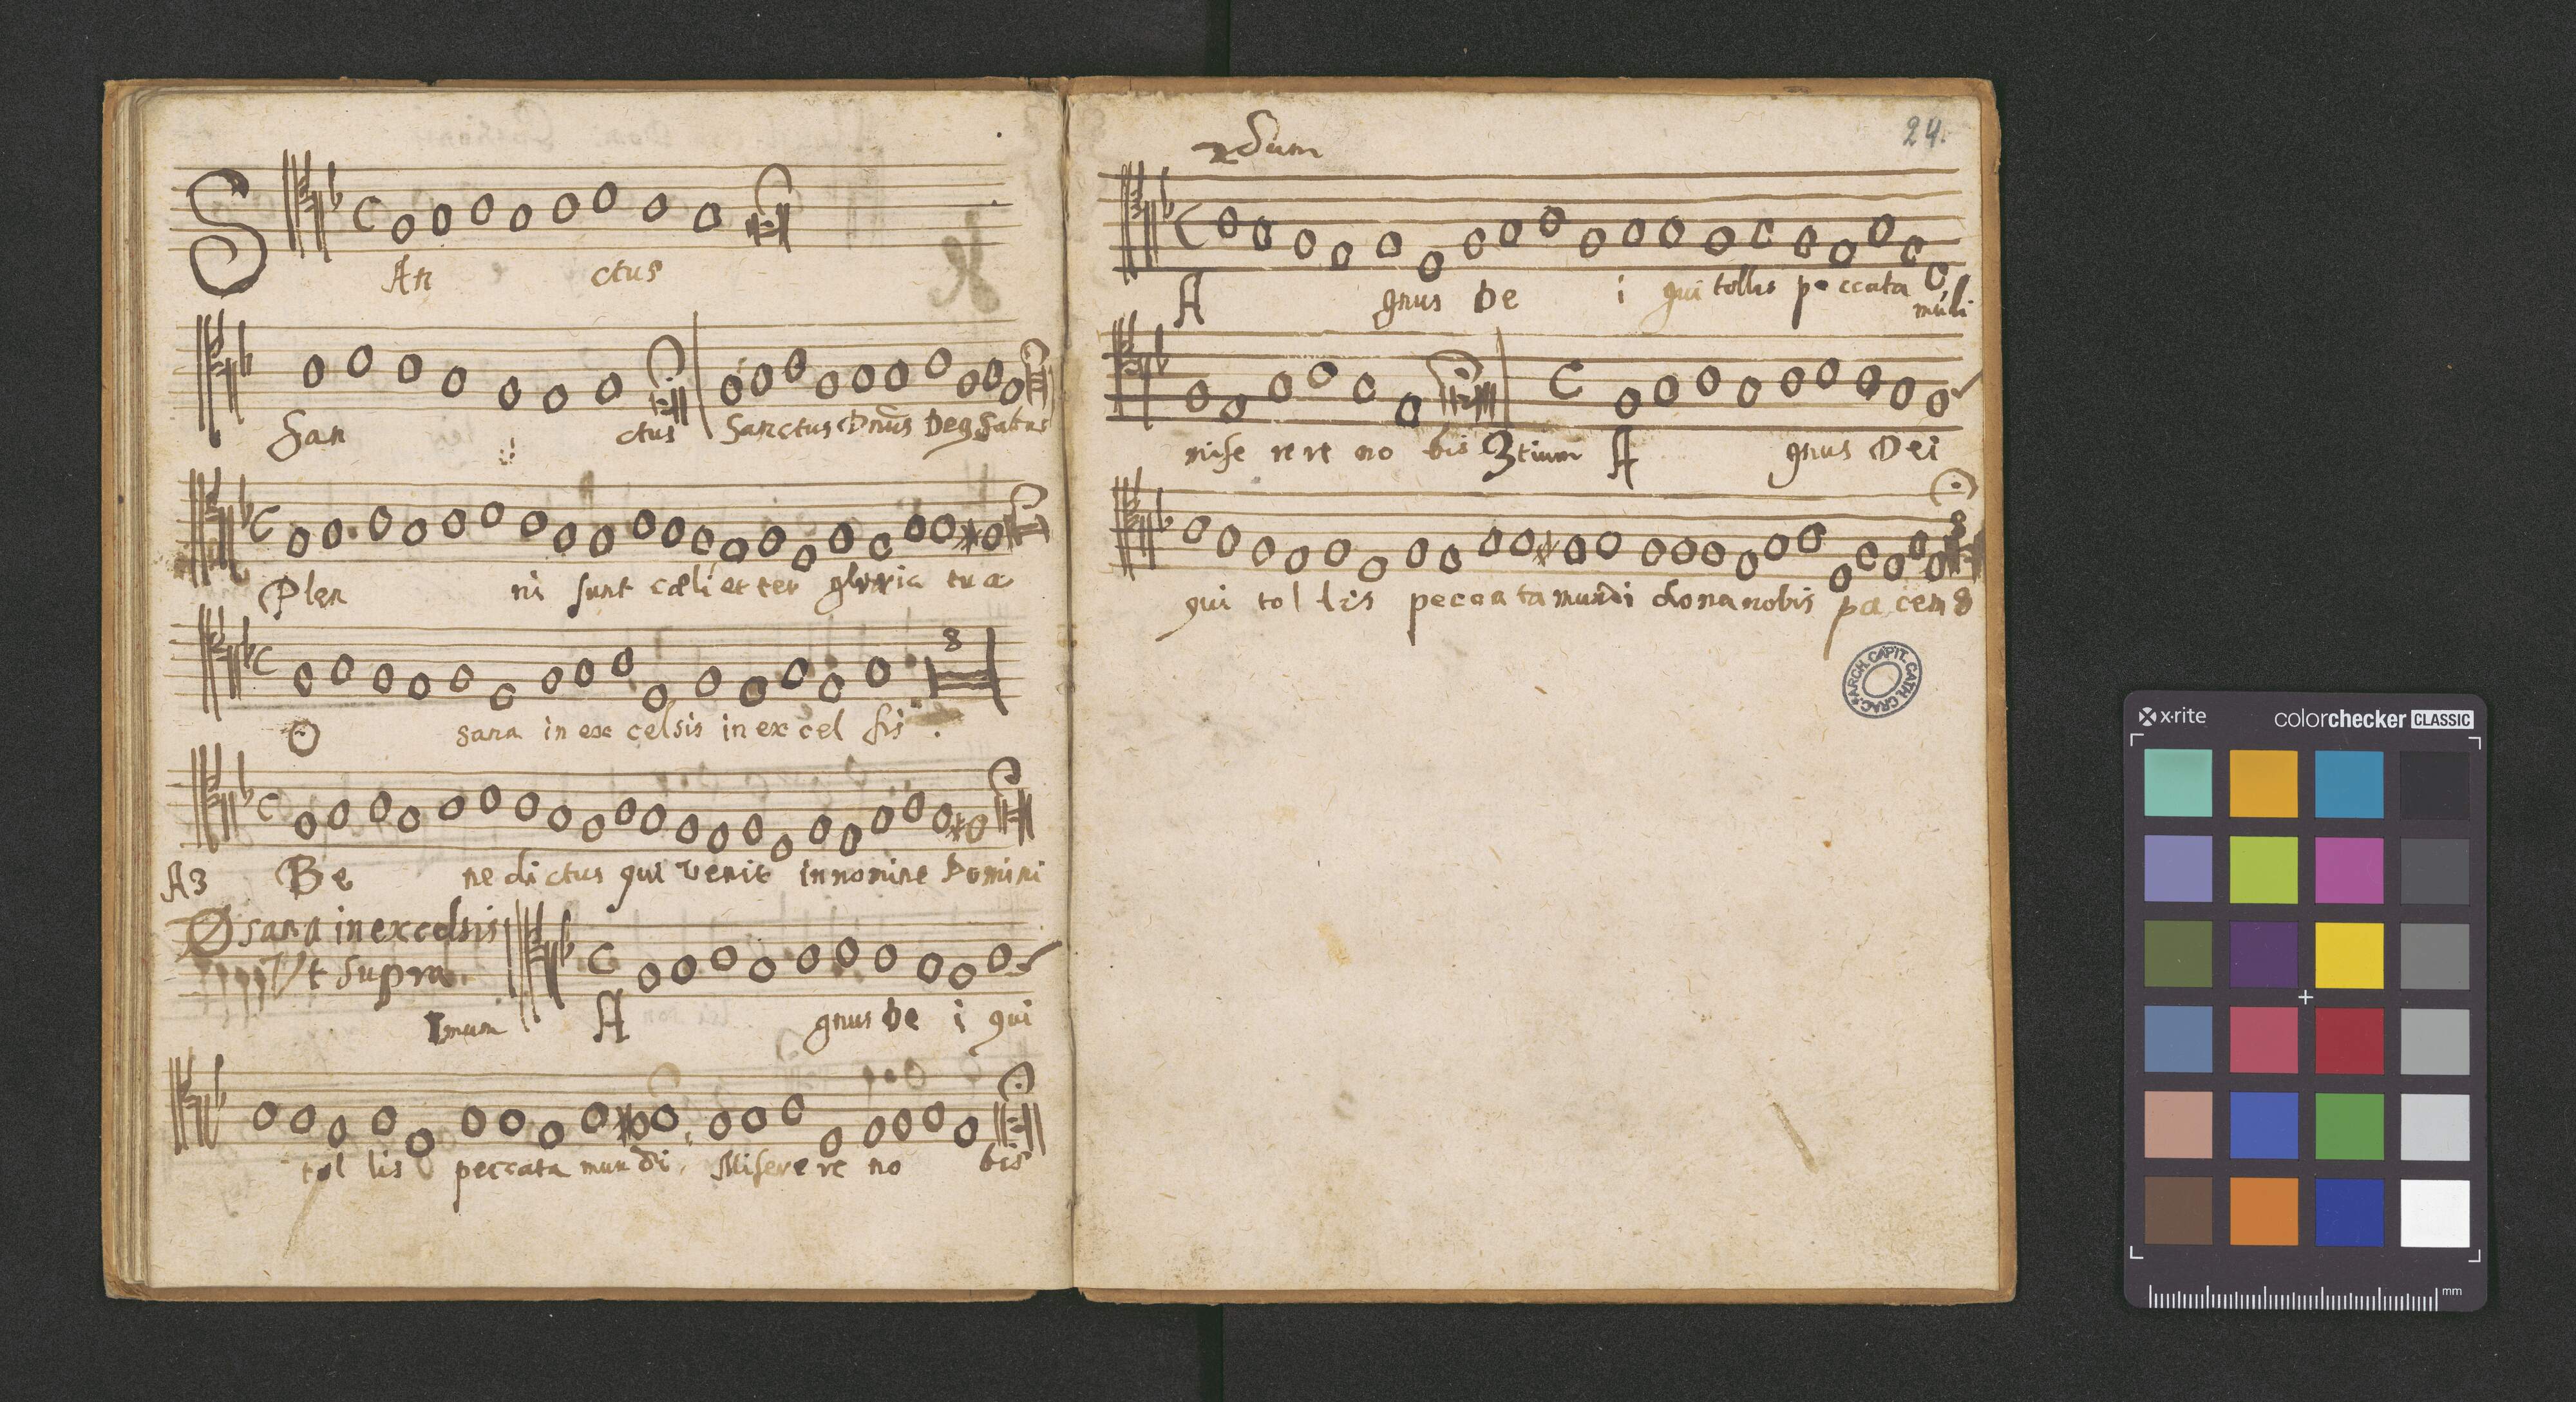 SAn ctus
San ctus Sanctus Dnus Deg Sa
Plen ni sunt cæli et ter gloria tua
O sana in ex celsis in ex cel sis
A3 Be ne di ctus qui venit in nomine Domini
Osana in excelsis
Vt supra
Imum A gnus De i qui
tol lis peccata mun di, Misere re no bis
24.
2dum
A gnus De i qui tollis pe ccata mūdi
mise re re no bis 3tium A gnus Dei
qui tol lis peccata mundi dona nobis pa cem
ARCH. CAPIT. CATH. CRAC.
x·rite colorchecker CLASSIC
mm